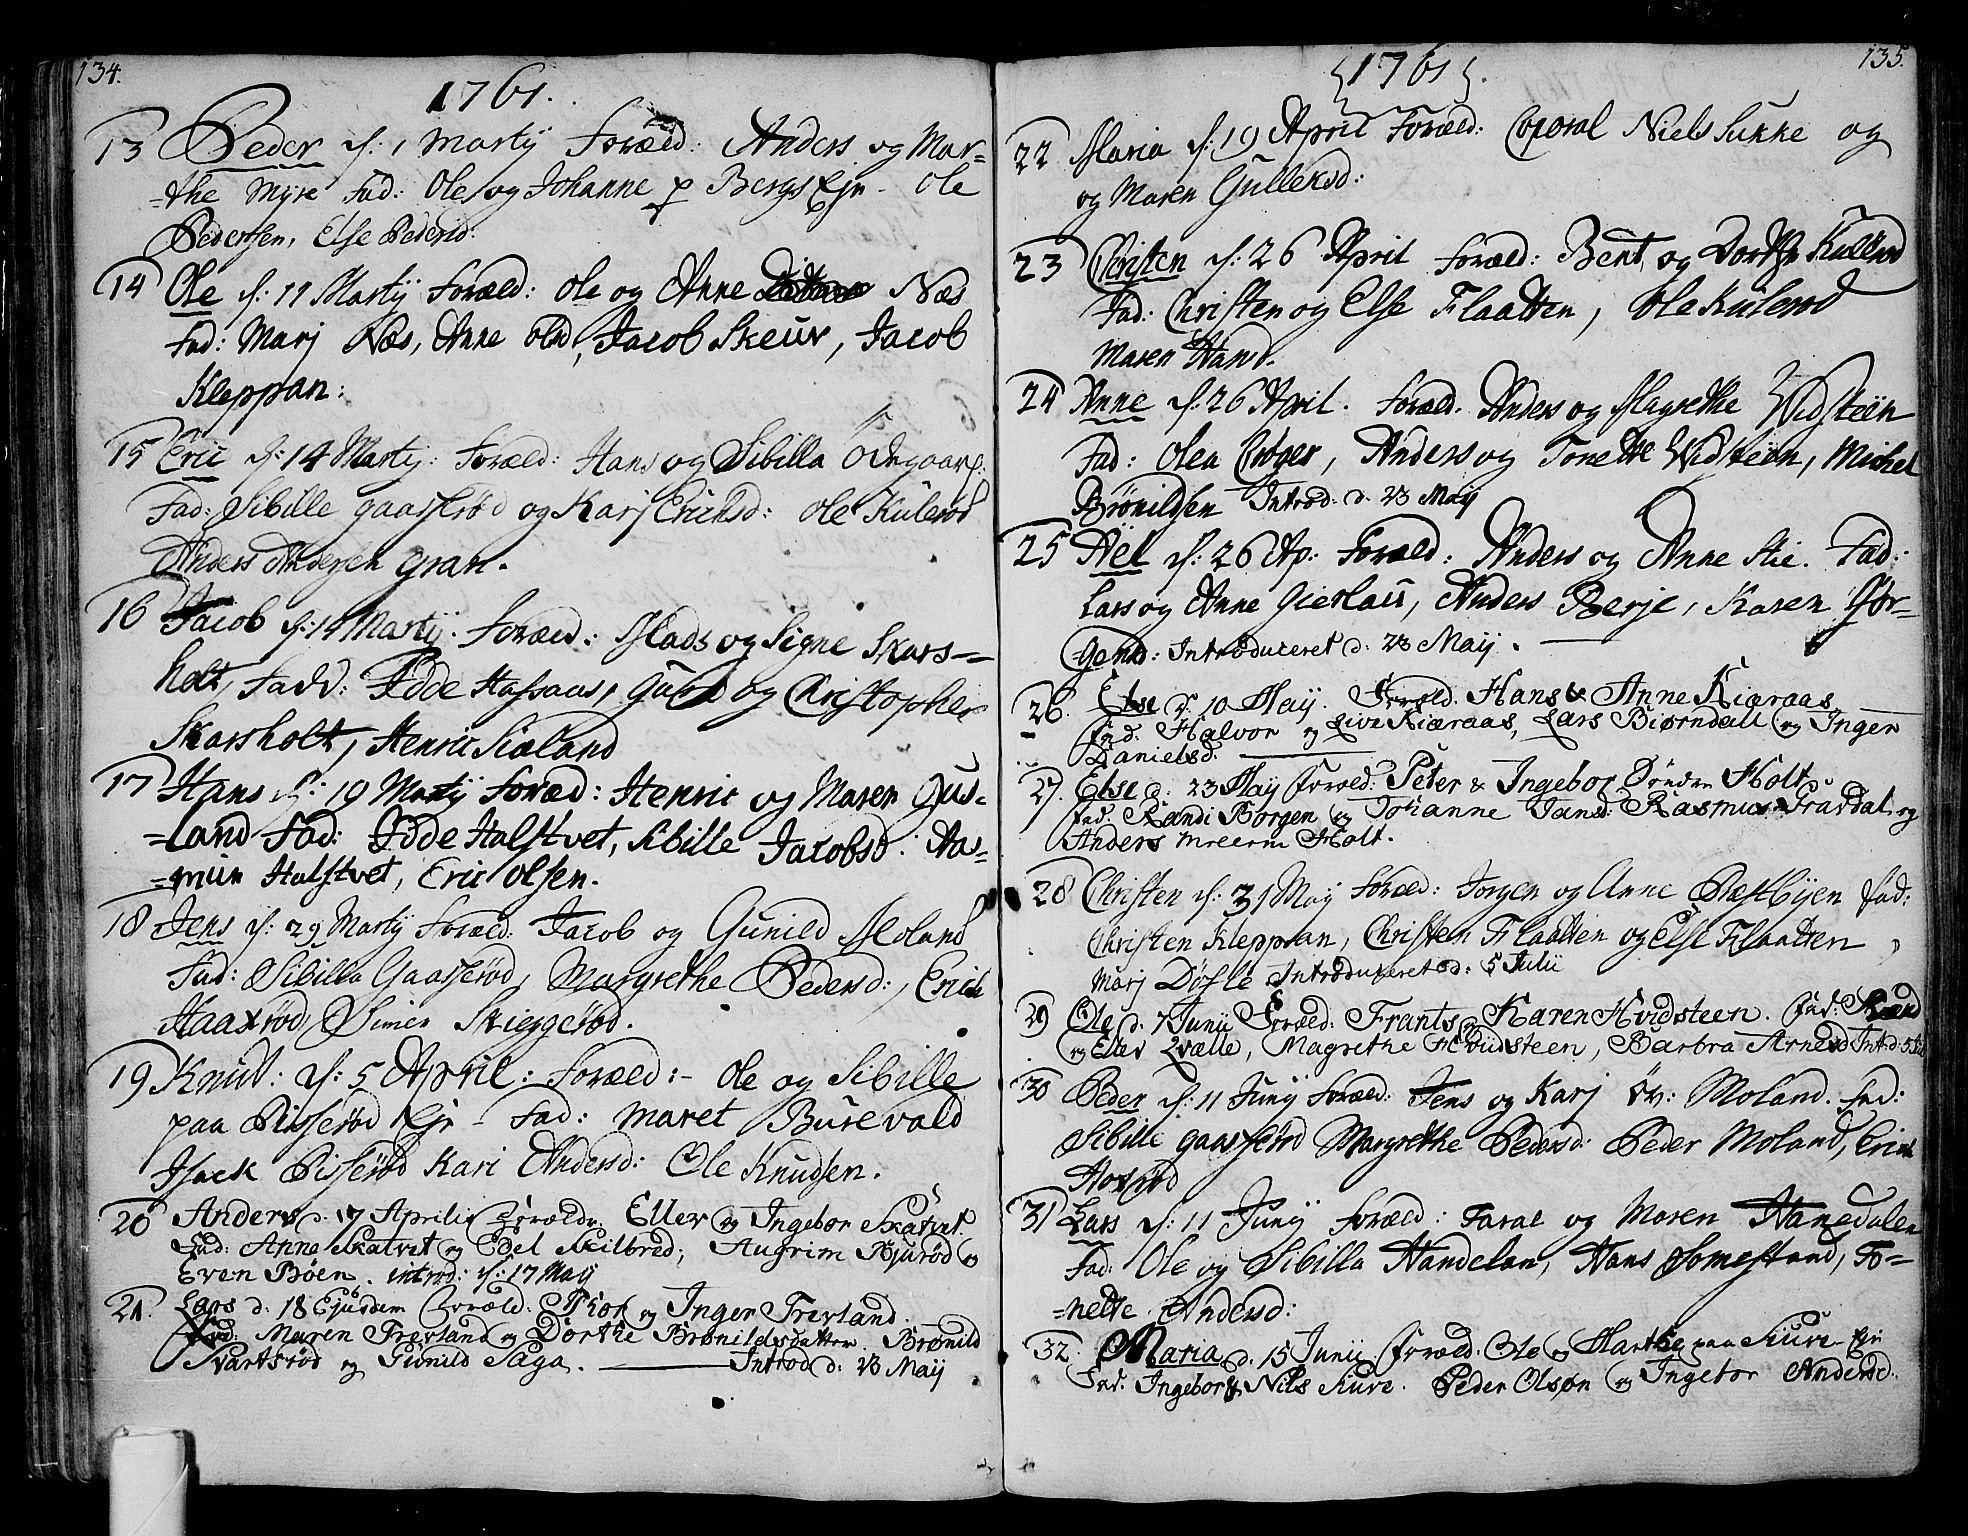 134.
1761.
13 Peder d: 1 Martij Foræld: Anders og Mar-
-the Myre Fad: Ole og Johanne p Bergs Ejn - Ole
Pedersen, Else Pedersd:
14 Ole d: 11 Martij Foræld: Ole og Anne Næs
Fad: Marj Næs, Anne Olsd, Jacob Skeuv, Jacob
Kleppan:
15 Eric d: 14 Martij: Foræld: Hans og Sibilla Odegaard:
Fad: Sibille gaasserød og Karj Ericksd: Ole Kulerød
Anders Andersen Gran.
16 Jacob d: 14 Martij. Foræld: Mads og Signe Skars-
holt, Fadd: Edde Hafsaas, Guro og Christopher
Skarsholt, Henric Siæland
17 Hans d: 19 Martij Foræld: Henric og Maren Aus-
-land Fad: Edde Halstvet, Sibille Jacobsd: Aas-
-mun Halstvet, Eric Olsen.
18 Jens d: 29 Martij Foræld: Jacob og Gunild Moland
Fad: Sibilla Gaasserød, Margrethe Pedersd:, Erich
Haaxrød, Simen Skieggerød.
19 Knut: d: 5 April: Foræld:- Ole og Sibille
paa Pisserød Ejn - Fad: Maret Burevald
Isack Pisserød Kari Andersd: Ole Knudsen.
20 Anders d. 17 Aprilis Foræld: Ellev og Ingebor Skatvet
Fad: Anne Skatvet og Edel Skilbred; Augrim Biurød og
Even Bøen. introd: d: 17 Maij
21. Lars d. 18 Ejusdem Foræld: Thor og Inger Trevland.
Fad: Maren Trevland og Dorthe Brønildsdatter Brønild
Svartsrød og Gunild Saga. Introd d: 23 Maij
135.
1761.
22 Maria d: 19 April Foræld: Corporal Niels Sukke og
og Maren Gulleksd:
23 Christen d: 26 April Foræld: Bent og Dorthe Kulerød
Fad: Christen og Else Flaatten, Ole Kulerod
Maren Hansd.
24 Anne d: 26 April. Foræld. Anders og Magrethe Widsteen
Fad: Olea Crøger, Anders og Tonette Widsteen, Michel
Brønildsen Introd: d. 23 Maij
25 Ael d: 26 Ap: Foræld: Anders og Anne Stie. Fad:
Lars og Anne Gierlau, Anders Berje, Karen Jør-
-gensd: Introduceret d. 23 Maij.
26. Else d. 10 Maij. Foræld. Hans & Anne Kiæraas
Fad: Halvor og Live Kiæraas, Lars Biørndall og Inger
Danielsd.
27. Else d: 23 Maij Foræld: Peter & Ingebor Søndre Holt
Fad: Randi Borgen og Johanne Jansd: Rasmus Gravdal og
Anders Holt.
28 Christen d: 31 Maij Foræld: Jorgen og Anne Bæstbyen Fad:
Christen Kleppan, Christen Flaatten og Else Flaatten,
Marj Døsle Introduceret d: 5 Julii
29 Ole d. 7 Junii Foræld: Frants og Karen Hvidsteen. Fad:
og Ellev Qvælle, Magrethe Hvidsteen, Barbra Arnesd Int: d: 5 Jul
30 Peder d: 11 Junij Foræld: Jens og Karj öv: Moland. Fad:
Sibille gaasserød Margrethe Pedersd: Peder Moland, Erich
Hoxrød
31 Lars d: 11 Junij Foræld: Taral og Maren Hanedalen
Fad: Ole og Sibilla Handelan, Hans Somestand, To-
-nette Andersd:
32. Maria d. 15 Junii Foræld: Ole og Marthe paa Skuve Ejn
Fad. Ingebor & Nils Skuve. Peder Olsøn og Ingebor Andersd.